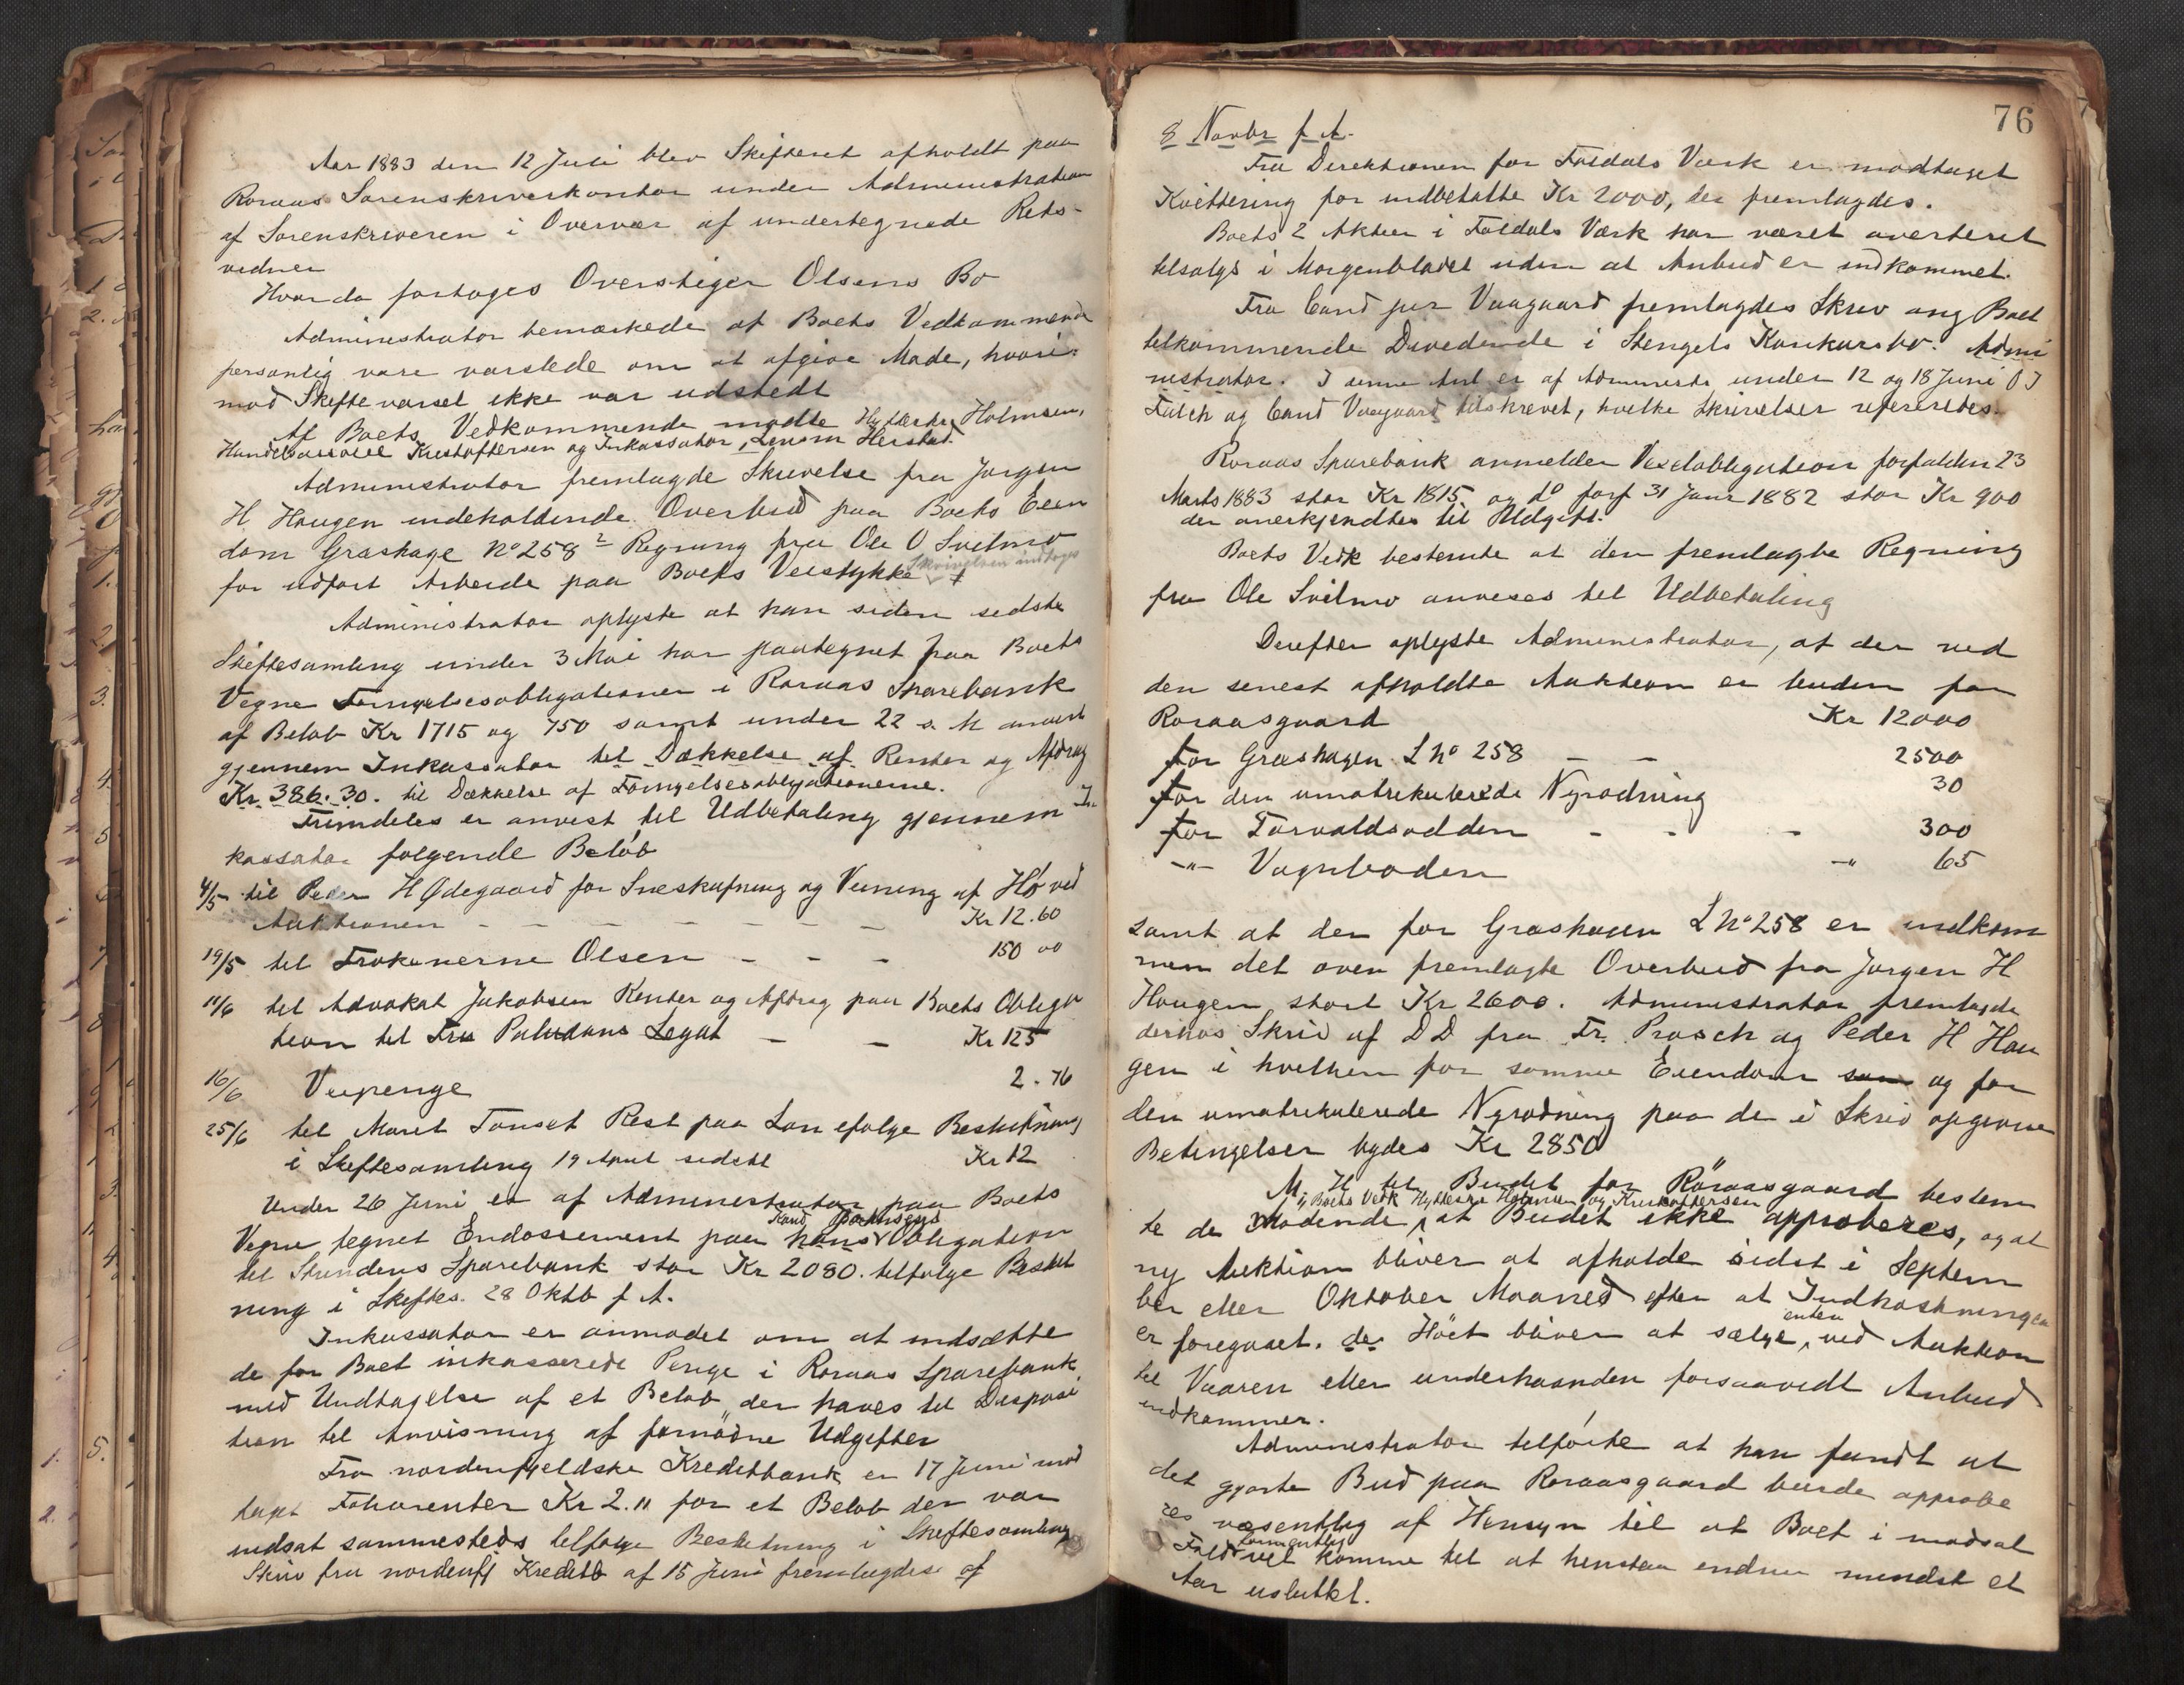 Aar 1883 den 12 Juli blev Skifteret afholdt paa
Roraas Sorenskriverkontor under Administration
af Sorenskriveren i Overvær af undertegnede Rets-
vidner
Hvorda foretoges Overstiger Olsens Bo
Administrator bemærkede at Boets Vedkommende
personlig vare varslede om at afgive Møde, hvori-
mod Skiftevarsel ikke var udstedt
Af Boets Vedkommende mødte Hytteskr. Holmsen,
Handelsmand Kristoffersen og Inkassator, Lensm Herstad.
Administrator fremlagde Skrivelse fra Jørgen
H. Haugen indeholdende Overbud paa Boets Eien
dom Græshage No 258 2 Regning fra Ole O Svelmo
for udført Arbeide paa Boets Veistykke Skrivelsen indtages
Administrator oplyste at han siden sidste
Skiftesamling under 3 Mai har paategnet paa Boets
Vegne Fornyelsesobligationer i Roraas Sparebank
af Beløb Kr 1715 og 750 samt under 22 s. M anvist
gjennem Inkassator til Dækkelse af Renter og Afdrag
Kr. 386.30. til Dækkelse af Fornyelsesobligationerne.
Fremdeles er anvist til Udbetaling gjennem In
kassator følgende Beløb
4/5 til Peder H Ødegaard for Sneskufning og Veining af Hø ved
Auktionen - - - - - - - Kr 12.60
19/5 til Frøkenerne Olsen - - - 150 00
11/6 til Advokat Jakobsen Renter og Afdrag paa Boets Obliga
tion til Fru Paludans Legat - - Kr 125
16/6 Veipenge 2.76
25/6 til Marit Tønset Rest paa Løn efølge Beslutning
i Skiftesamling 19 April sidstl Kr 12
Under 26 Juni er af Administrator paa Boets
Vegne tegnet Endossement paa hans Kand Obligation
til Strindens Sparebank stor Kr 2080. tilfølge Beslut
ning i Skiftes. 28 Oktb f A.
Inkassator er anmodet om at indsætte
de for Boet inkasserede Penge i Roraas Sparebank
med Undtagelse af et Beløb, der haves til Disposi
tion til Anvisning af fornødne Udgifter
Fra nordenfjeldske Kreditbank er 17 Juni mod
taget Foliorenter Kr 2.11 for et Beløb der var
indsat sammesteds tilfølge Beslutning i Skiftesamling
Skriv fra nordenfj Kreditb af 15 Juni fremlagdes af
76
8 Novbr f A.
Fra Direktionen for Foldals Værk er modtaget
Kvittering for indbetalte Kr 2000, der fremlagdes.
Boets 2 Aktier i Foldals Værk har været averteret
tilsalgs i Morgenbladet uden at Anbud er indkommet.
Fra Cand jur Vaagaard fremlagdes Skriv ang Boet
tilkommende Dividende i Stengels Konkursbo. Admi
nistrator. I denne Anl er af Administr under 12 og 18 Juni O J
Falch og Cand Vaagaard tilskrevet, hvilke Skrivelser refereredes.
Roraas Sparebank anmelder Vexelobligation forfalden 23
Marts 1883 stor Kr 1815. og do forf 31 Janr 1882 stor Kr 900
der anerkjendtes til Udgift.
Boets Vedk bestemte at den fremlagte Regning
fra Ole Svelmo anvises til Udbetaling
Derefter oplyste Administrator, at der ved
den senest afholdte Auktion er buden for
Roraasgaard Kr 12000
for Græshagen L No 258 - - 2500
for den umatrikulerede Nyrødning 30
for Torvaldsodden - - - 300
-"- Vognboden -" 65
samt at der for Græshagen L No 258 er indkom
men det oven fremlagte Overbud fra Jørgen H
Haugen, stort Kr 2600. Administrator fremlagde
derhos Skriv af D D fra Fr. Prosch og Peder H Hau
gen i hvilken for samme Eiendom som og for
den umatrikulerede Nyrødning paa de i Skriv opgivne
Betingelser bydes Kr 2850
M. H til Budet for Röraasgaard bestem
i Boets Vedk Hytteskr Holmsen og Kristoffersen
te de Mødende, at Budet ikke approberes, og at
ny Auktion bliver at afholde sidst i Septem
ber eller Oktober Maaned efter at Indhøstningen
er foregaaet. der Höet bliver at sælge, enten ved Auktion
til Vaaren eller underhaanden forsaavidt Anbud
indkommer.
Administrator tilføiede at han fandt at
det gjorte Bud paa Roraasgaard burde approbe
res væsentlig af Hensyn til at Boet i modsat
Fald formentlig vil komme til at henstaa endnu mindst et
Aar usluttet.